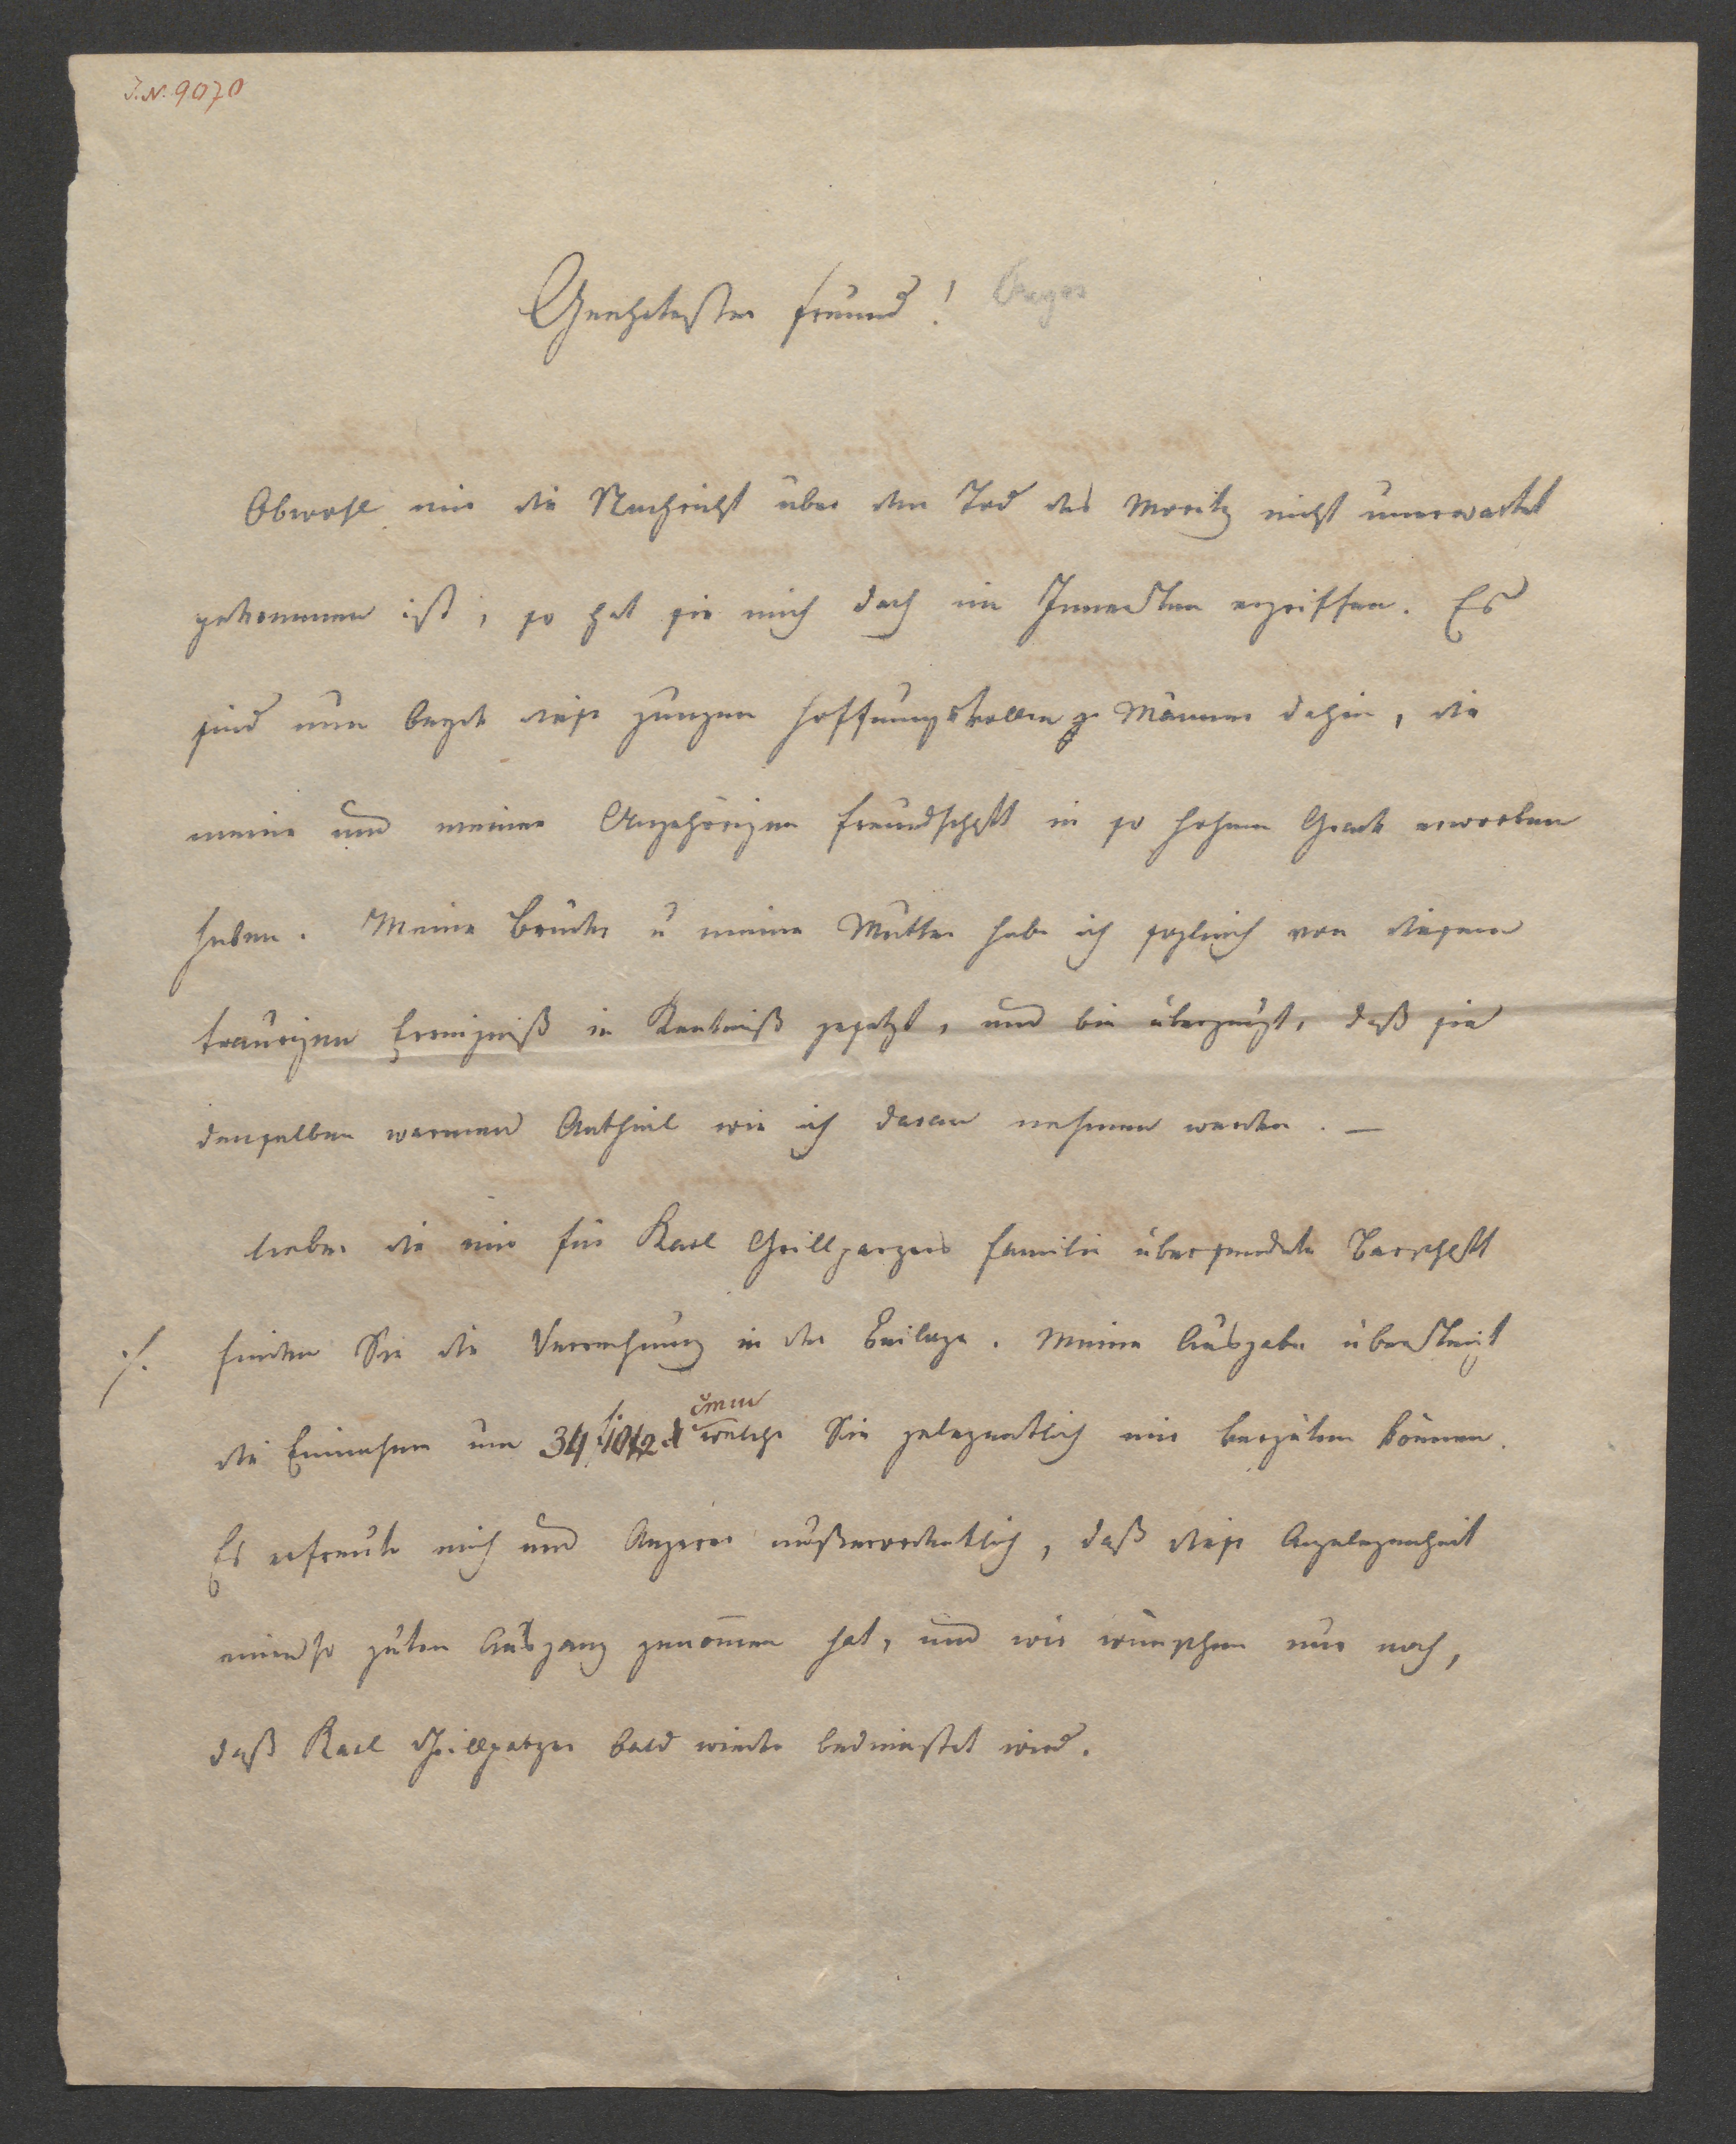 J.N. 9070
Geehrtester Freund!
Obwohl mir die Nachricht über den Tod des Moritz nicht unerwartet
gekommen ist, so hat sie mich doch im Innersten ergriffen. Es
sind nun beyde diese jungen hoffnungsvollen Männer dahin, die
meine und meiner Angehörigen Freundschaft in so hohem Grade erworben
haben. Meine Brüder u meine Mutter habe ich sogleich von diesem
traurigen Ereigniß in Kentniß gesetzt, und bin überzeugt, daß sie
denselben warmen Antheil wie ich daran nehmen werden. —
Ueber die mir für Karl Grillparzers Familie übersendete Barschaft
./. finden Sie die Verrechnung in der Beilage. Meine Ausgabe übersteigt
die Einnahme um 34 welche Sie gelegentlich mir vergüten können.
Es erfreute mich und außerordentlich, daß diese Angelegenheit
einen so guten Ausgang genom̄en hat, und wir wünschen nur noch,
daß Karl Grillparzer bald wieder bedienstet wird.